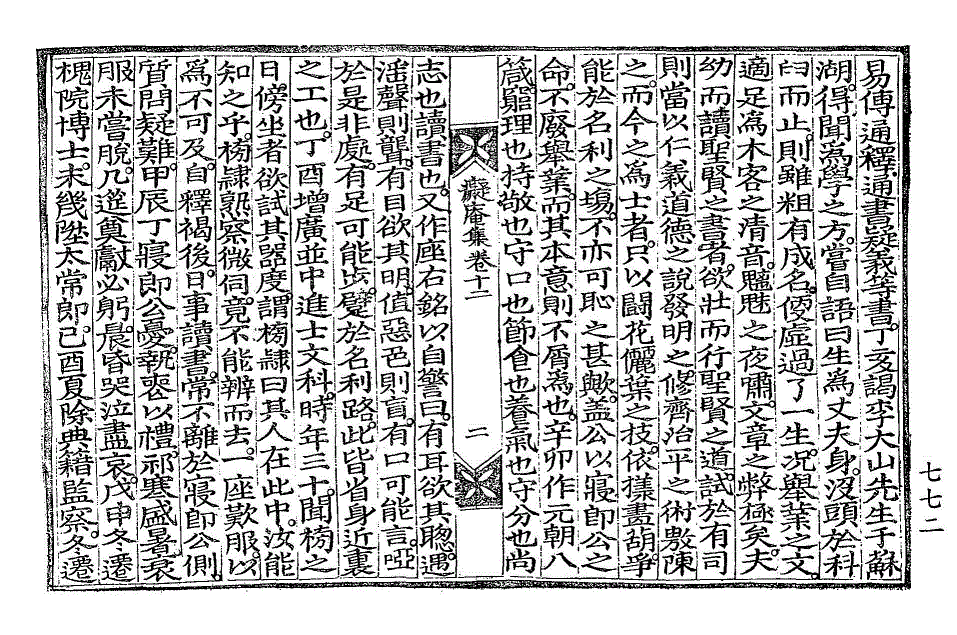 易傳通釋通書疑義等書丁亥謁李大山先生于蘇
湖得聞爲學之方嘗自語曰生爲丈夫身沒頭於科
臼而止則雖粗有成名便虛過了一生况擧業之文
適足爲木客之淸音魑魅之夜嘯文章之弊極矣夫
幼而讀聖賢之書者欲壯而行聖賢之道試於有司
則當以仁義道德之說發明之修齊治平之術敷陳
之而今之爲士者只以鬪花儷葉之技依㨾畫胡爭
能於名利之塲不亦可恥之甚歟盖公以寢郞公之
命不廢擧業而其本意則不屑爲也辛卯作元朝八
箴窮理也持敬也守口也節食也養氣也守分也尙
癡庵集 卷十二
二
志也讀書也又作座右銘以自警曰有耳欲其聰遇
淫聲則聾有目欲其明値惡色則盲有口可能言啞
於是非處有足可能步躄於名利路此皆省身近裏
之工也丁酉增廣並中進士文科時年三十聞榜之
日傍坐者欲試其器度謂榜隷曰其人在此中汝能
知之乎榜隷熟察微伺竟不能辨而去一座歎服以
爲不可及自釋褐後日事讀書常不離於寢郞公側
質問疑難甲辰丁寢郞公憂執喪以禮祁寒盛暑衰
服未嘗脫几筵奠獻必躬晨昏哭泣盡哀戊申冬遷
槐院博士未幾陞太常郞己酉夏除典籍監察冬遷
七七二